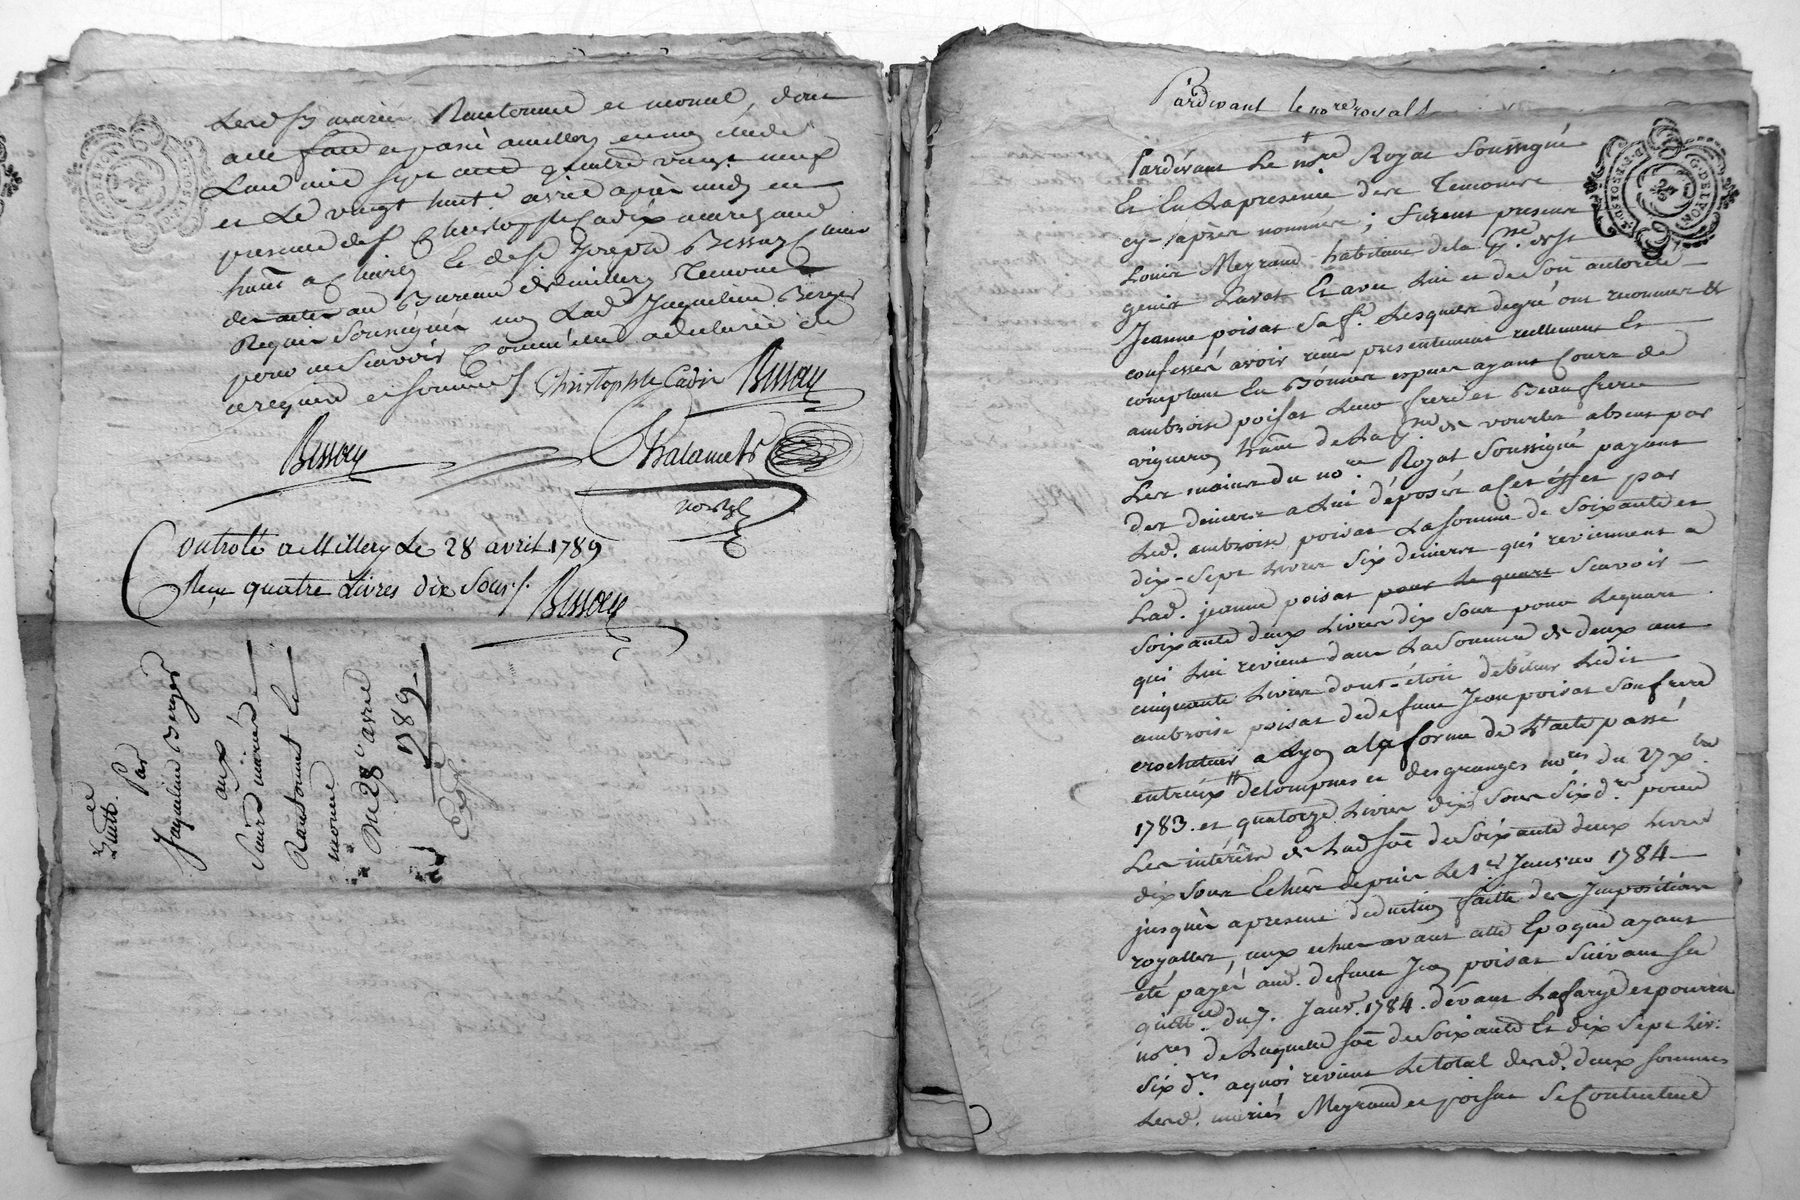 Lesd. Sr mariés Rantonnet et monet, dont
acte fait et passé a millery en mon étude
L'an mil sept cent quatre vingt neuf
et Le vingt huit avril après midy en
presence de Sr Christophle Cadix marchand
hant a Charly et de Sr Joseph Bessay Commis
des actes au Bureau de millery Temoins
Requis Soussignés non Lad Jaqueline Berger
pour ne Scavoir Comme elle a déclaré de
ce requise et sommée / Christophle Cadix Bessay
Bessay Chalamet
nore Ryl
Controlé a Millery Le 28 avril 1789
Reçu quatre Livres dix Sous /. Bessay
Quittce
Par
Jaqueline Berger
aux
Sieurs mariés
Rantonnet et
monet
Du 28 avril
1789
Expé
Pardevant le nore royal s
Pardevant Le nore Royal Soussigné
Et En La presence des Temoins
cy-après nommés ; furent presens
Louis Meyrand habitant de la psse de St
genis Laval Et avec Lui et de Son autorité
Jeanne poisat Sa fe. Lesquels de gré ont reconnu et
confessé avoir reçu présentement reellement Et
comptant En Bonnes espèces ayant Cours de
ambroise poisat Leur frere et Beau frere
vigneron hant de La psse de vourles absent par
Les mains du nore Royal Soussigné payant
des deniers a Lui déposés a cet éffet par
Led. ambroise poisat La somme de Soixante et
dix-Sept Livres Six deniers qui reviennent a
Lad. jeanne poisat pour le quart Scavoir
Soixante deux Livres dix Sous pour Le quart
qui Lui revient dans La Somme de deux cent
cinquante Livres dont étoit debiteur Ledit
ambroise poisat de defunt Jean poisat Son frere
crocheteur a Lyon a la forme de L'acte passé
entr'eux delompnes et desgranges nores du 27 xbre
1783. et quatorze Livres dix Sous Six drs pour
Les intérêts de Lad Soe de Soixante deux Livres
dix Sous Echus depuis Le 1er Janvier 1784
jusqu'à present déduction faitte des Impositions
royalles, ceux echus avant cette Epoque ayant
été payés aud. defunt Jean poisat Suivant Sa
quittce du 7. Janvr. 1784. dévant Lafarge et pourrin
nores de Laquelle Soe de Soixante Et dix Sept Liv.
Six drs a quoi revient Le total desd. deux sommes
Lesd. mariés Meyrand et poisat Se Contentent